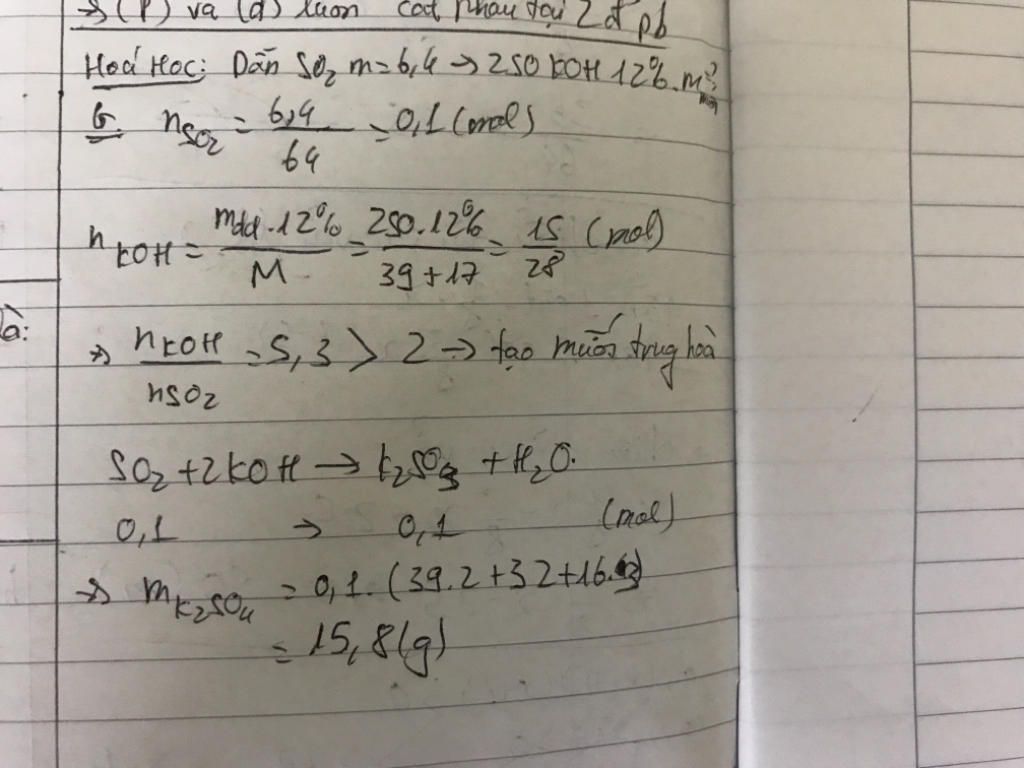 → (P) và (d) luôn cắt nhau tại 2 đ pb
Hoá Học: Dẫn SO2 m=6,4 → 250 KOH 12%. m?
G nSO2 = 6,4/64 = 0,1 (mol)
nKOH = mdd.12%/M = 250.12%/39+17 = 15/28 (mol)
à:
→ nKOH/nSO2 = 5,3 > 2 → tạo muối trung hoà
SO2 + 2KOH → K2SO3 + H2O.
0,1 → 0,1 (mol)
→ mK2SO4 = 0,1.(39.2+32+16.3)
= 15,8(g)